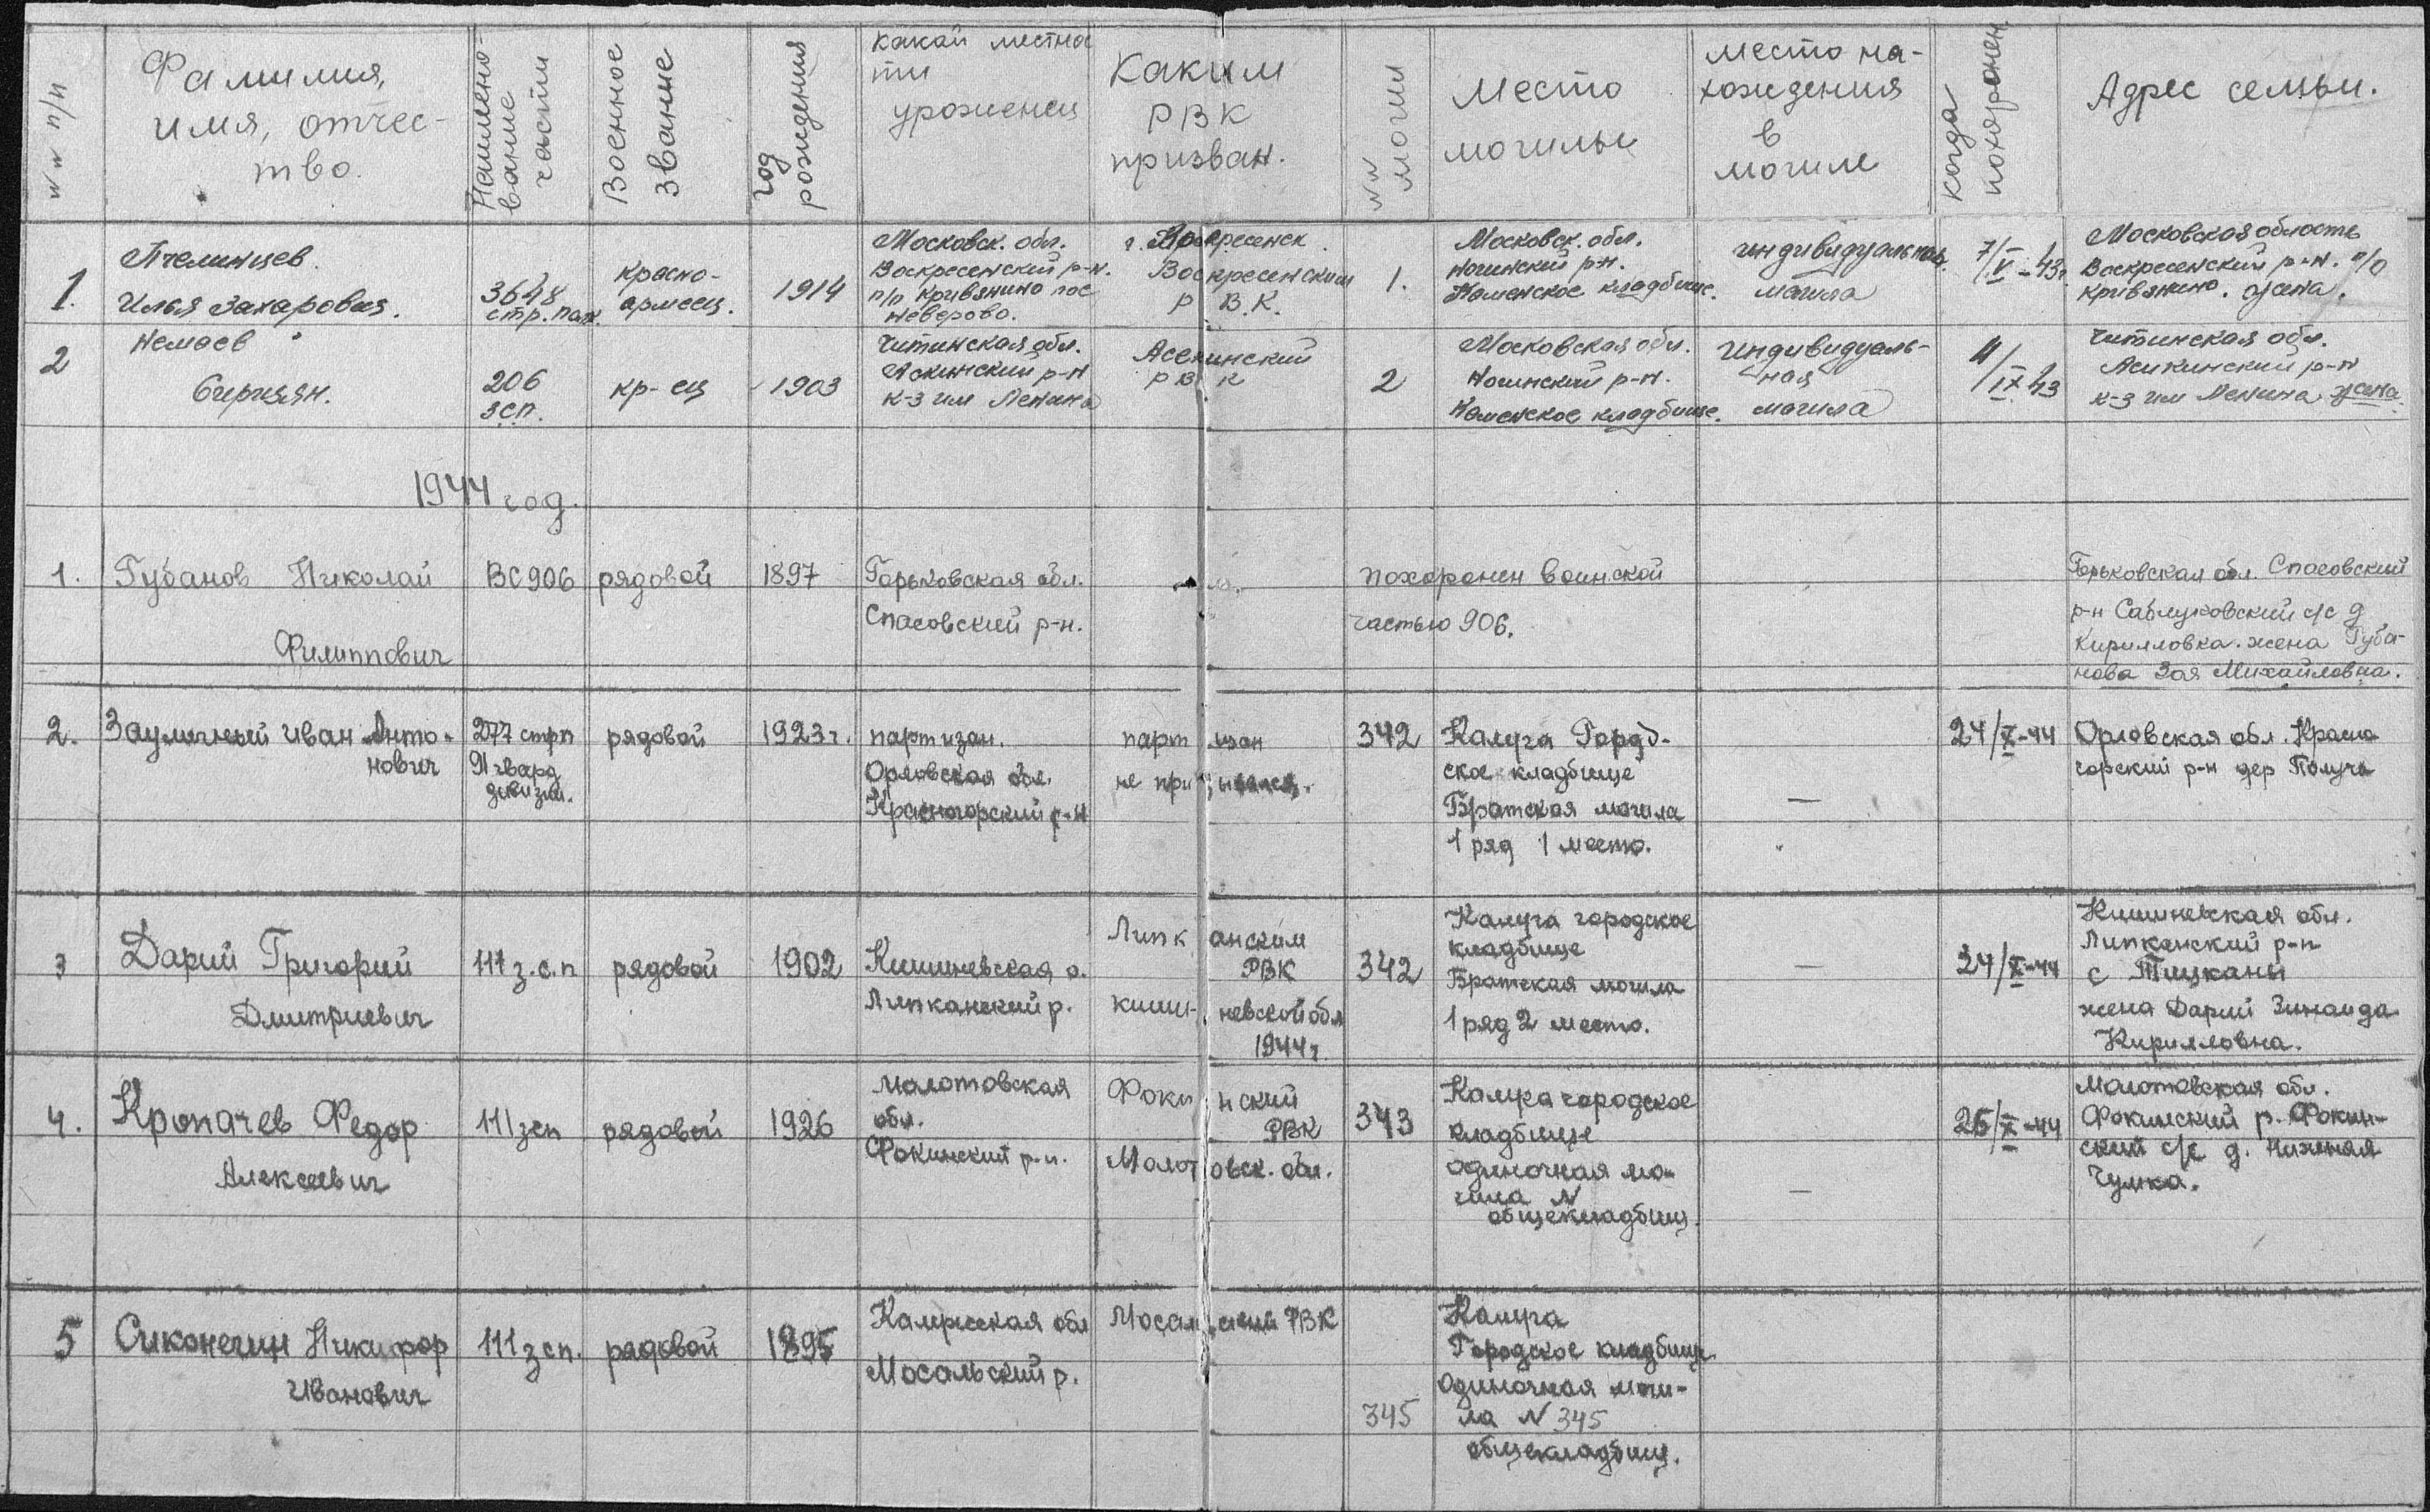 NN п/п
Фамилия,
имя, отчес-
тво.
Наимено-
вание
части
Военное
звание
год
рождения
какой местнос
ти
уроженец
Каким
РВК
призван.
NN
могил
Место
могилы
место на-
хождения
в
могиле
когда
похоронен
Адрес семьи.
1.
Пчелинцев
Илья Захарович.
3648
стр. пол.
красно-
армеец.
1914
Московск. обл.
Воскресенский р-н.
п/о Кривякино пос
Неверово.
г. Воскресенск.
Воскресенским
Р В.К.
1.
Московск. обл.
Ногинский р-н.
Каменское кладбище.
индивидуальная
могила
7/V-43г
Московская область
Воскресенский р-н. п/о
Кривякино. жена.
2
Немаев
206
зсп.
кр-ец
1903
Читинская обл.
р-н
к-з им Ленина
РВК
2
Московская обл.
Ногинский р-н.
Каменское кладбище.
индивидуаль-
ная
могила
4/IX 43
Читинская обл.
р-н
к-з им Ленина жена
1944 год.
1.
Губанов Николай
Филиппович
ВС 906
рядовой
1897
Горьковская обл.
Спасовский р-н.
похоронен воинской
частью 906.
Горьковская обл. Спасовский
р-н Саблуковский с/с д
Кирилловка. жена Губа-
нова Зоя Михайловна.
2.
Зауличный Иван Анто-
нович
277 стрп
91 гвард
дивизии.
рядовой
1923г.
партизан.
Орловская обл.
Красногорский р-н
партизан
не призывался.
342
Калуга Город-
ское кладбище
Братская могила
1 ряд 1 место.
—
24/X-44
Орловская обл. Красно
горский р-н дер
3
Дарий Григорий
Дмитриевич
111 з.с.п
рядовой
1902
Кишиневская о.
Липканский р.
Липканским
РВК
Кишиневской обл
1944г.
342
Калуга городское
кладбище
Братская могила
1 ряд 2 место.
—
24/X-44
Кишиневская обл.
Липканский р-н
с Тицканы
жена Дарий Зинаида
Кирилловна.
4.
Кропачев Федор
Алексеевич
111 зсп
рядовой
1926
Молотовская
обл.
Фокинский р-н.
Фокинский
РВК
Молотовск. обл.
343
Калуга городское
кладбище
одиночная мо-
гила N
общекладбищ.
—
26/X-44
Молотовская обл.
Фокинский р. Фокин-
ский с/с д. Нижняя
Чумка.
5
Сиконечин Никифор
Иванович
111 зсп.
рядовой
1895
Калужская обл
Мосальский р.
Мосальским РВК
345
Калуга
Городское кладбище
одиночная моги-
ла N 345
общекладбищ.